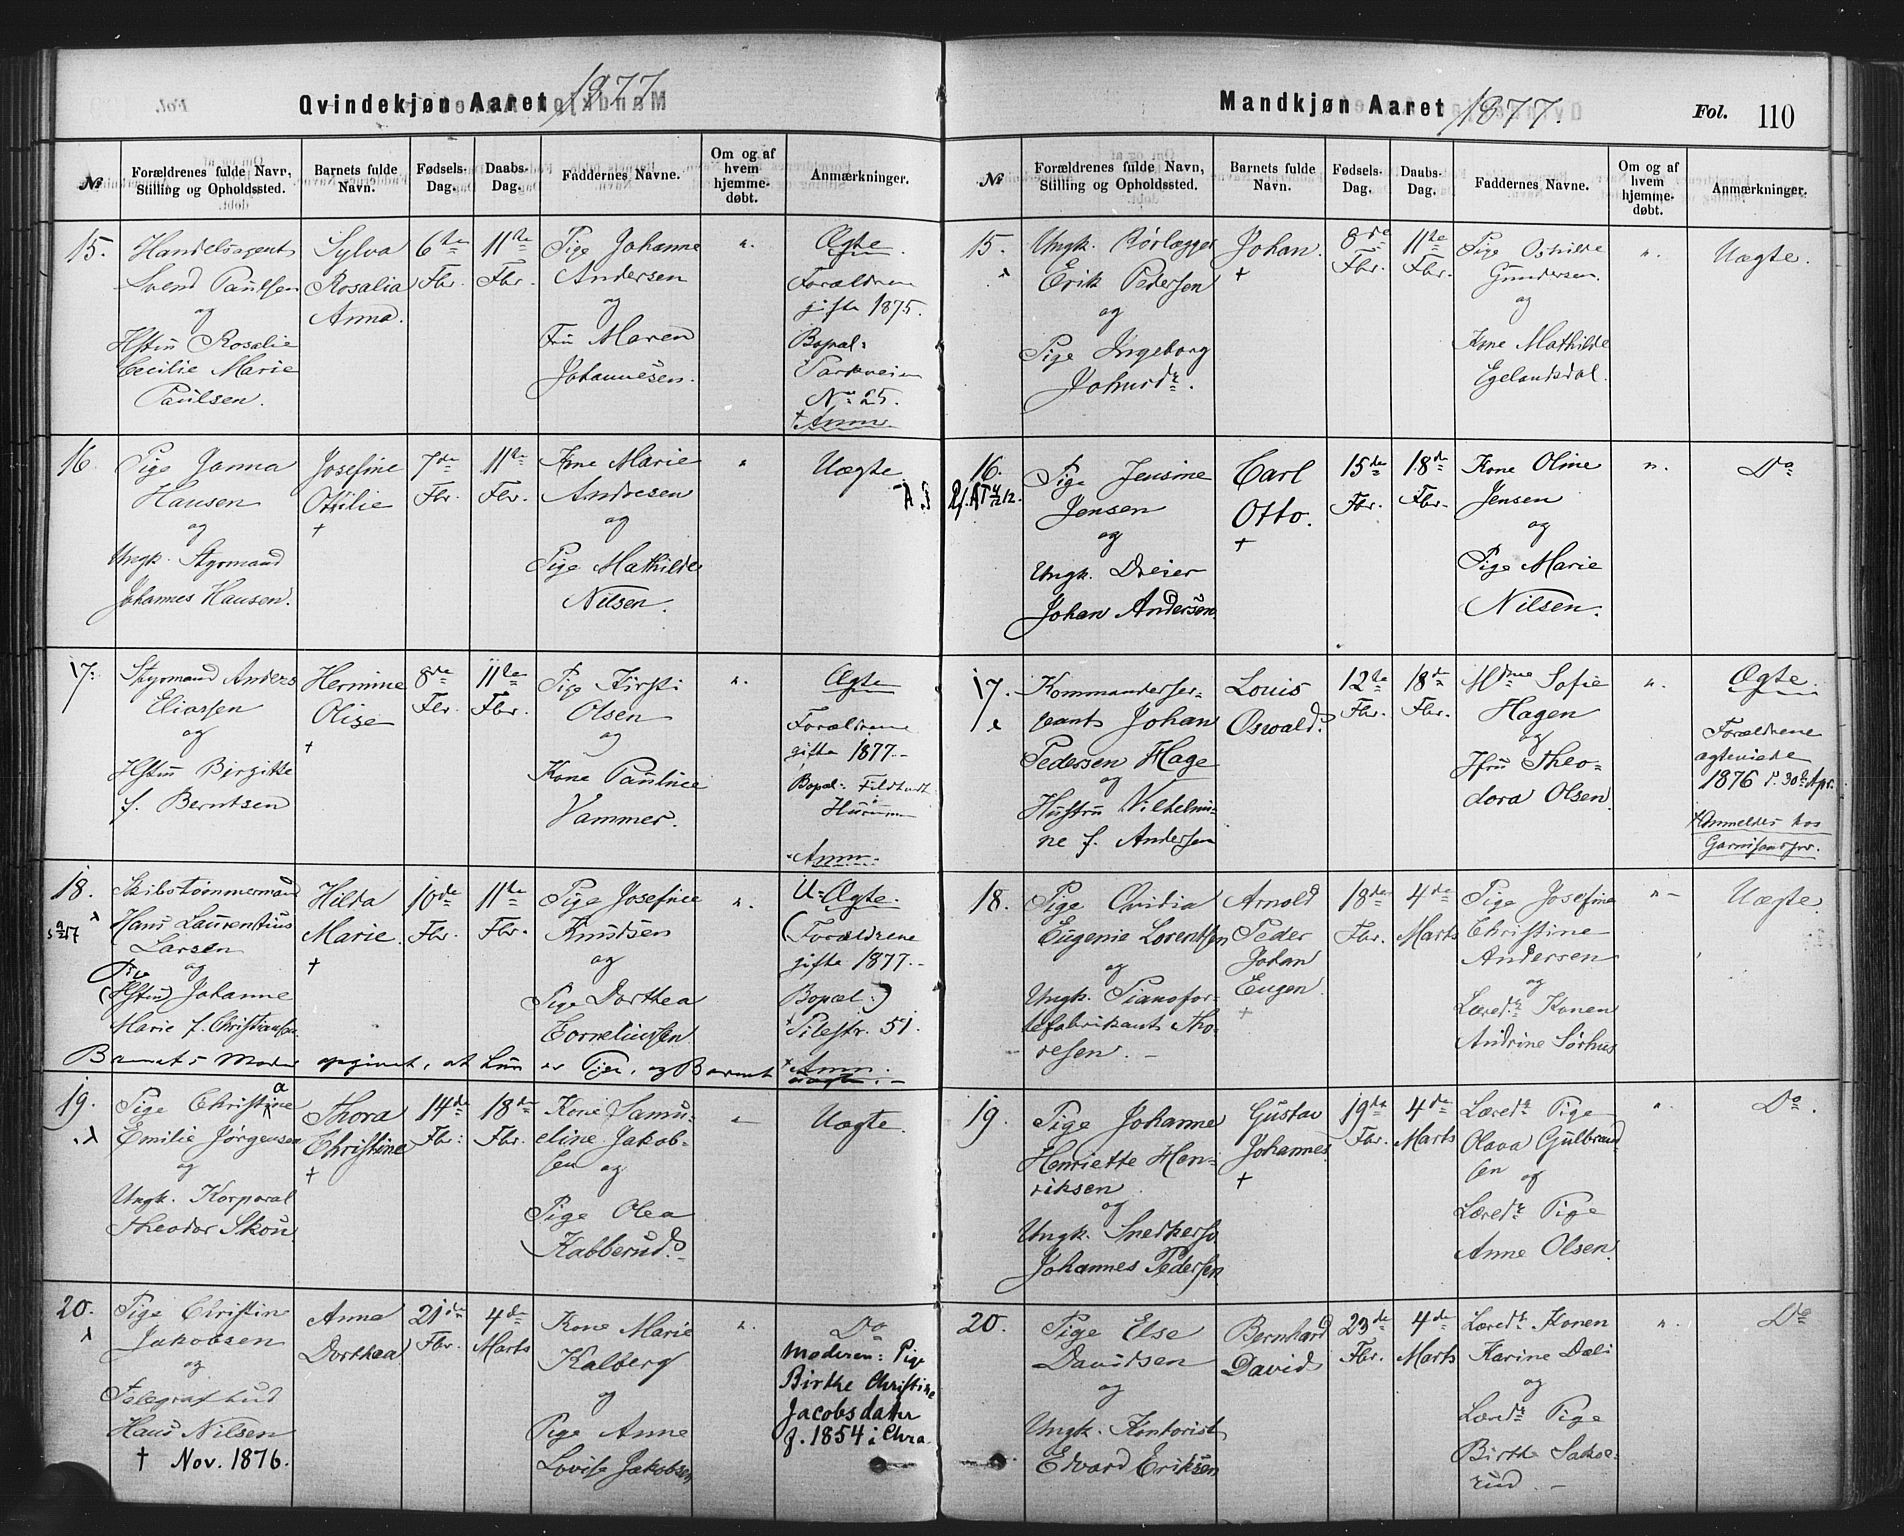 Qvindekjøn Aaret 1877
Fol.
№
Forældrenes fulde Navn,
Stilling og Opholdssted.
Barnets fulde
Navn.
Fødsels-
Dag.
Daabs-
Dag.
Faddernes Navne.
Om og af
hvem
hjemme-
døbt.
Anmærkninger.
15.
Handelsagent
Svend Paulsen
og
Hstru Rosalie
Cecilie Marie
Paulsen.
Sylva
Rosalia
Anna.
6te
Fbr.
11te
Fbr.
Pige Johanne
Andersen
og
Fru Maren
Johannesen.
"
Ægte
Forældrene
gifte 1875.
Bopæl:
Parkveien
No 25.
+ Anm
16.
Pige Janna
Hansen
og
Ungk. Styrmand
Johannes Hansen.
Josefine
Ottilie
+
7de
Fbr.
11te
Fbr.
Kone Marie
Andresen
og
Pige Mathilde
Nilsen.
"
Uægte
17.
Styrmand Anders
Eliassen
og
Hstru Birgitte
f. Berntsen
Hermine
Olise
+
8de
Fbr.
11te
Fbr.
Pige Kirsti
Olsen
og
Kone Pauline
Vammer.
"
Ægte
Forældrene
gifte 1877.-
Bopæl: Fildtvedt
Hurum
Anm:
18.
Skibstømmermand
Hans Laurentius
Larsen
og
Pige
(Hstru) Johanne
Marie f. Christiansen
Hilda
Marie.
+
10de
Fbr.
11te
Fbr.
Pige Josefine
Knudsen
og
Pige Dorthea
Corneliussen
"
U-Ægte.
(Forældrene
gifte 1877.-
Bopæl:)
Pilestr. 51.
+ Anm.
Barnets Moder opgivet, at hun er Pige, og Barnet uægte.-
19.
Pige Christine
a
Emilie Jørgensen
og
Ungk. Korporal
Theodor Skou
Thora
Christine
+
14de
Fbr.
18de
Fbr.
Kone Samu-
eline Jakob-
sen og
Pige Olea
Kabberud.
Uægte.
20.
Pige Christine
Jakobsen
og
Telegrafbud
Hans Nilsen
+ Nov. 1876.
Anna
Dorthea
21de
Fbr.
4de
Marts
Kone Marie
Kalberg
og
Pige Anne
Lovise Jakobsen
"
Do
Moderen: Pige
Birthe Christine
Jacobsdatter
f. 1854 i Chra.
Mandkjøn Aaret 1877.
Fol. 110
№
Forældrenes fulde Navn,
Stilling og Opholdssted.
Barnets fulde
Navn.
Fødsels-
Dag.
Daabs-
Dag.
Faddernes Navne.
Om og af
hvem
hjemme-
døbt.
Anmærkninger.
15.
Ungk. Rørlægger
Erik Pedersen
og
Pige Ingeborg
Johnsdr.
Johan.
+
8de
Fbr.
11te
Fbr.
Pige Oshilde
Gundersen
og
Kone Mathilde
Egelandsdal.
"
Uægte.
16.
Pige Jensine
Jensen
og
Ungk. Dreier
Johan Andersen
Carl
Otto.
+
15de
Fbr.
18de
Fbr.
Kone Oline
Jensen
og
Pige Marie
Nilsen.
"
Do
17.
Kommandersér-
geant Johan
Pedersen Hage
og
Hustru Vilhelmi-
ne f. Andersen
Louis
Oswald.
12te
Fbr.
18de
Fbr.
Mdme Sofie
Hagen
og
Jfru Theo-
dora Olsen.
"
Ægte.
Forældrene
ægteviede
1876 d. 30te Apr.
Anmeldes hos
Garnisonspr.
18.
Pige Ovidia
Eugenie Lorentsen
og
Ungk. Pianofor-
tefabrikant Tho-
resen. -
Arnold
Peder
Johan
Eugen
+
18de
Fbr.
4de
Marts
Pige Josefine
Christine
Andersen
og
Læredr Konen
Andrine Sørhus
"-
Uægte.
19.
Pige Johanne
Henriette Hen-
riksen
og
Ungk. Snedkersv
Johannes Pedersen
Gustav
Johannes
+
19de
Fbr.
4de
Marts
Læredr Pige
Olava Gulbrand-
sen og
Læredr Pige
Anne Olsen.
"
Do.
20.
Pige Else
Davidsen
og
Ungk. Kontorist
Edvard Eriksen
Bernhard
David
23de
Fbr.
4de
Marts
Læredr Konen
Karine Dæli
og
Læredr Pige
Birthe Sakse-
rud. -
"
Do